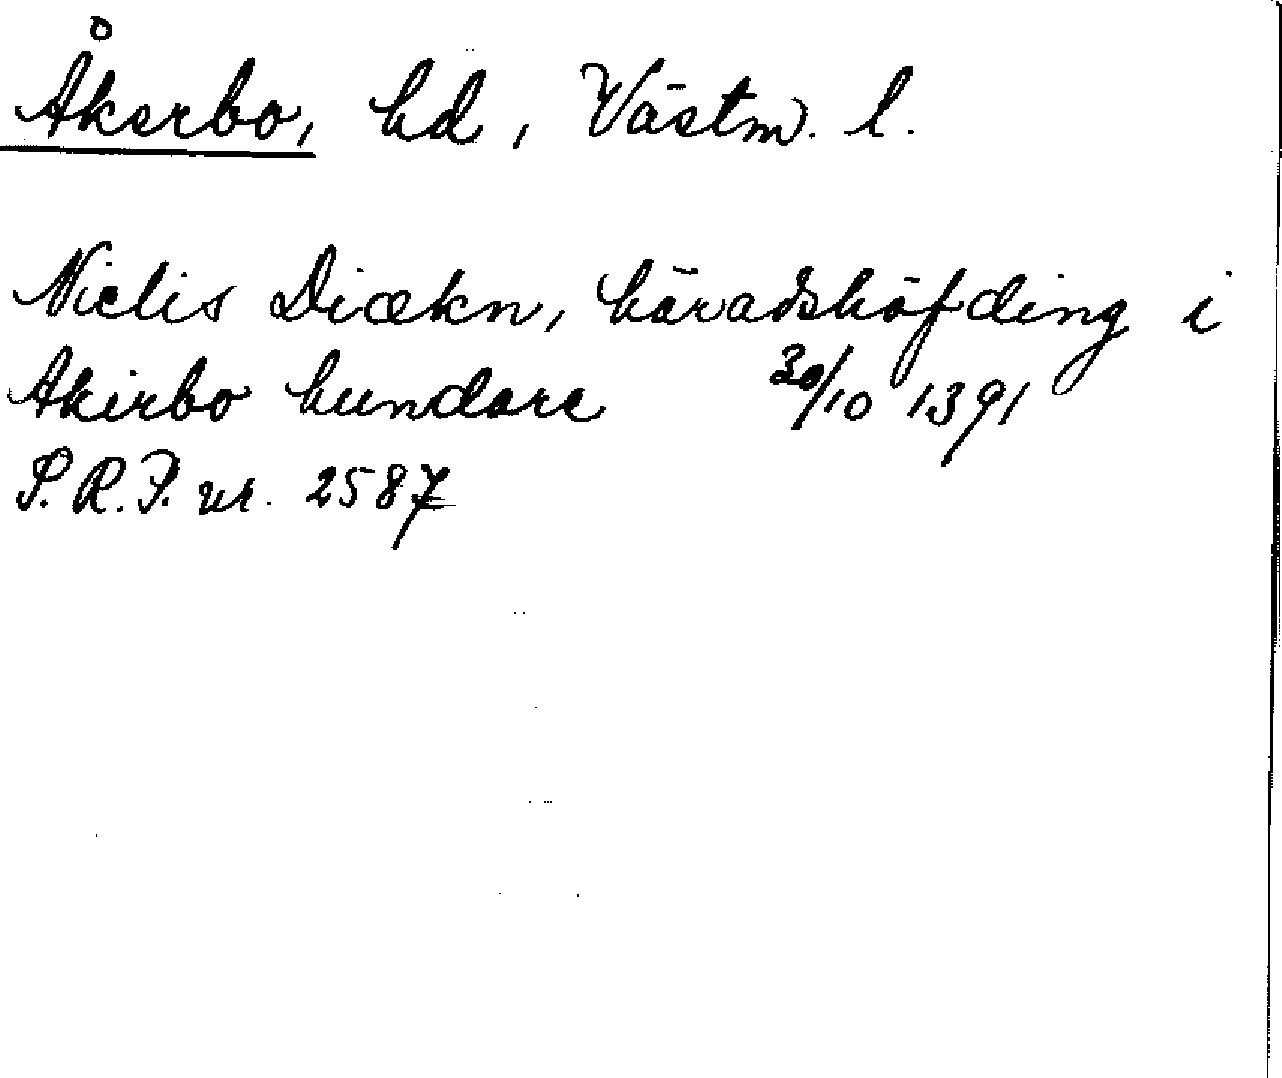 Åkerbo, hd, Västm. l.
Niclis Diækn, häradshöfding i
Akirbo hundare 30/10 1391
S.R.P. nr. 2587